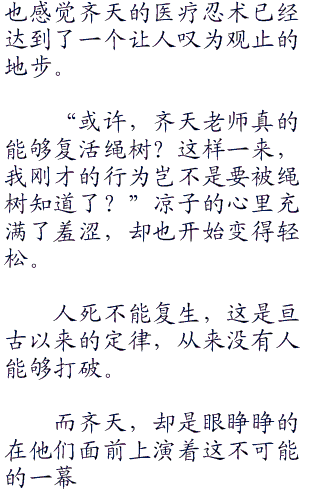 也感觉齐天的医疗忍术已经
达到了一个让人叹为观止的
地步。
“或许，齐天老师真的
能够复活绳树？这样一来，
我刚才的行为岂不是要被绳
树知道了？”凉子的心里充
满了羞涩，却也开始变得轻
松。
人死不能复生，这是亘
古以来的定律，从来没有人
能够打破。
而齐天，却是眼睁睁的
在他们面前上演着这不可能
的一幕